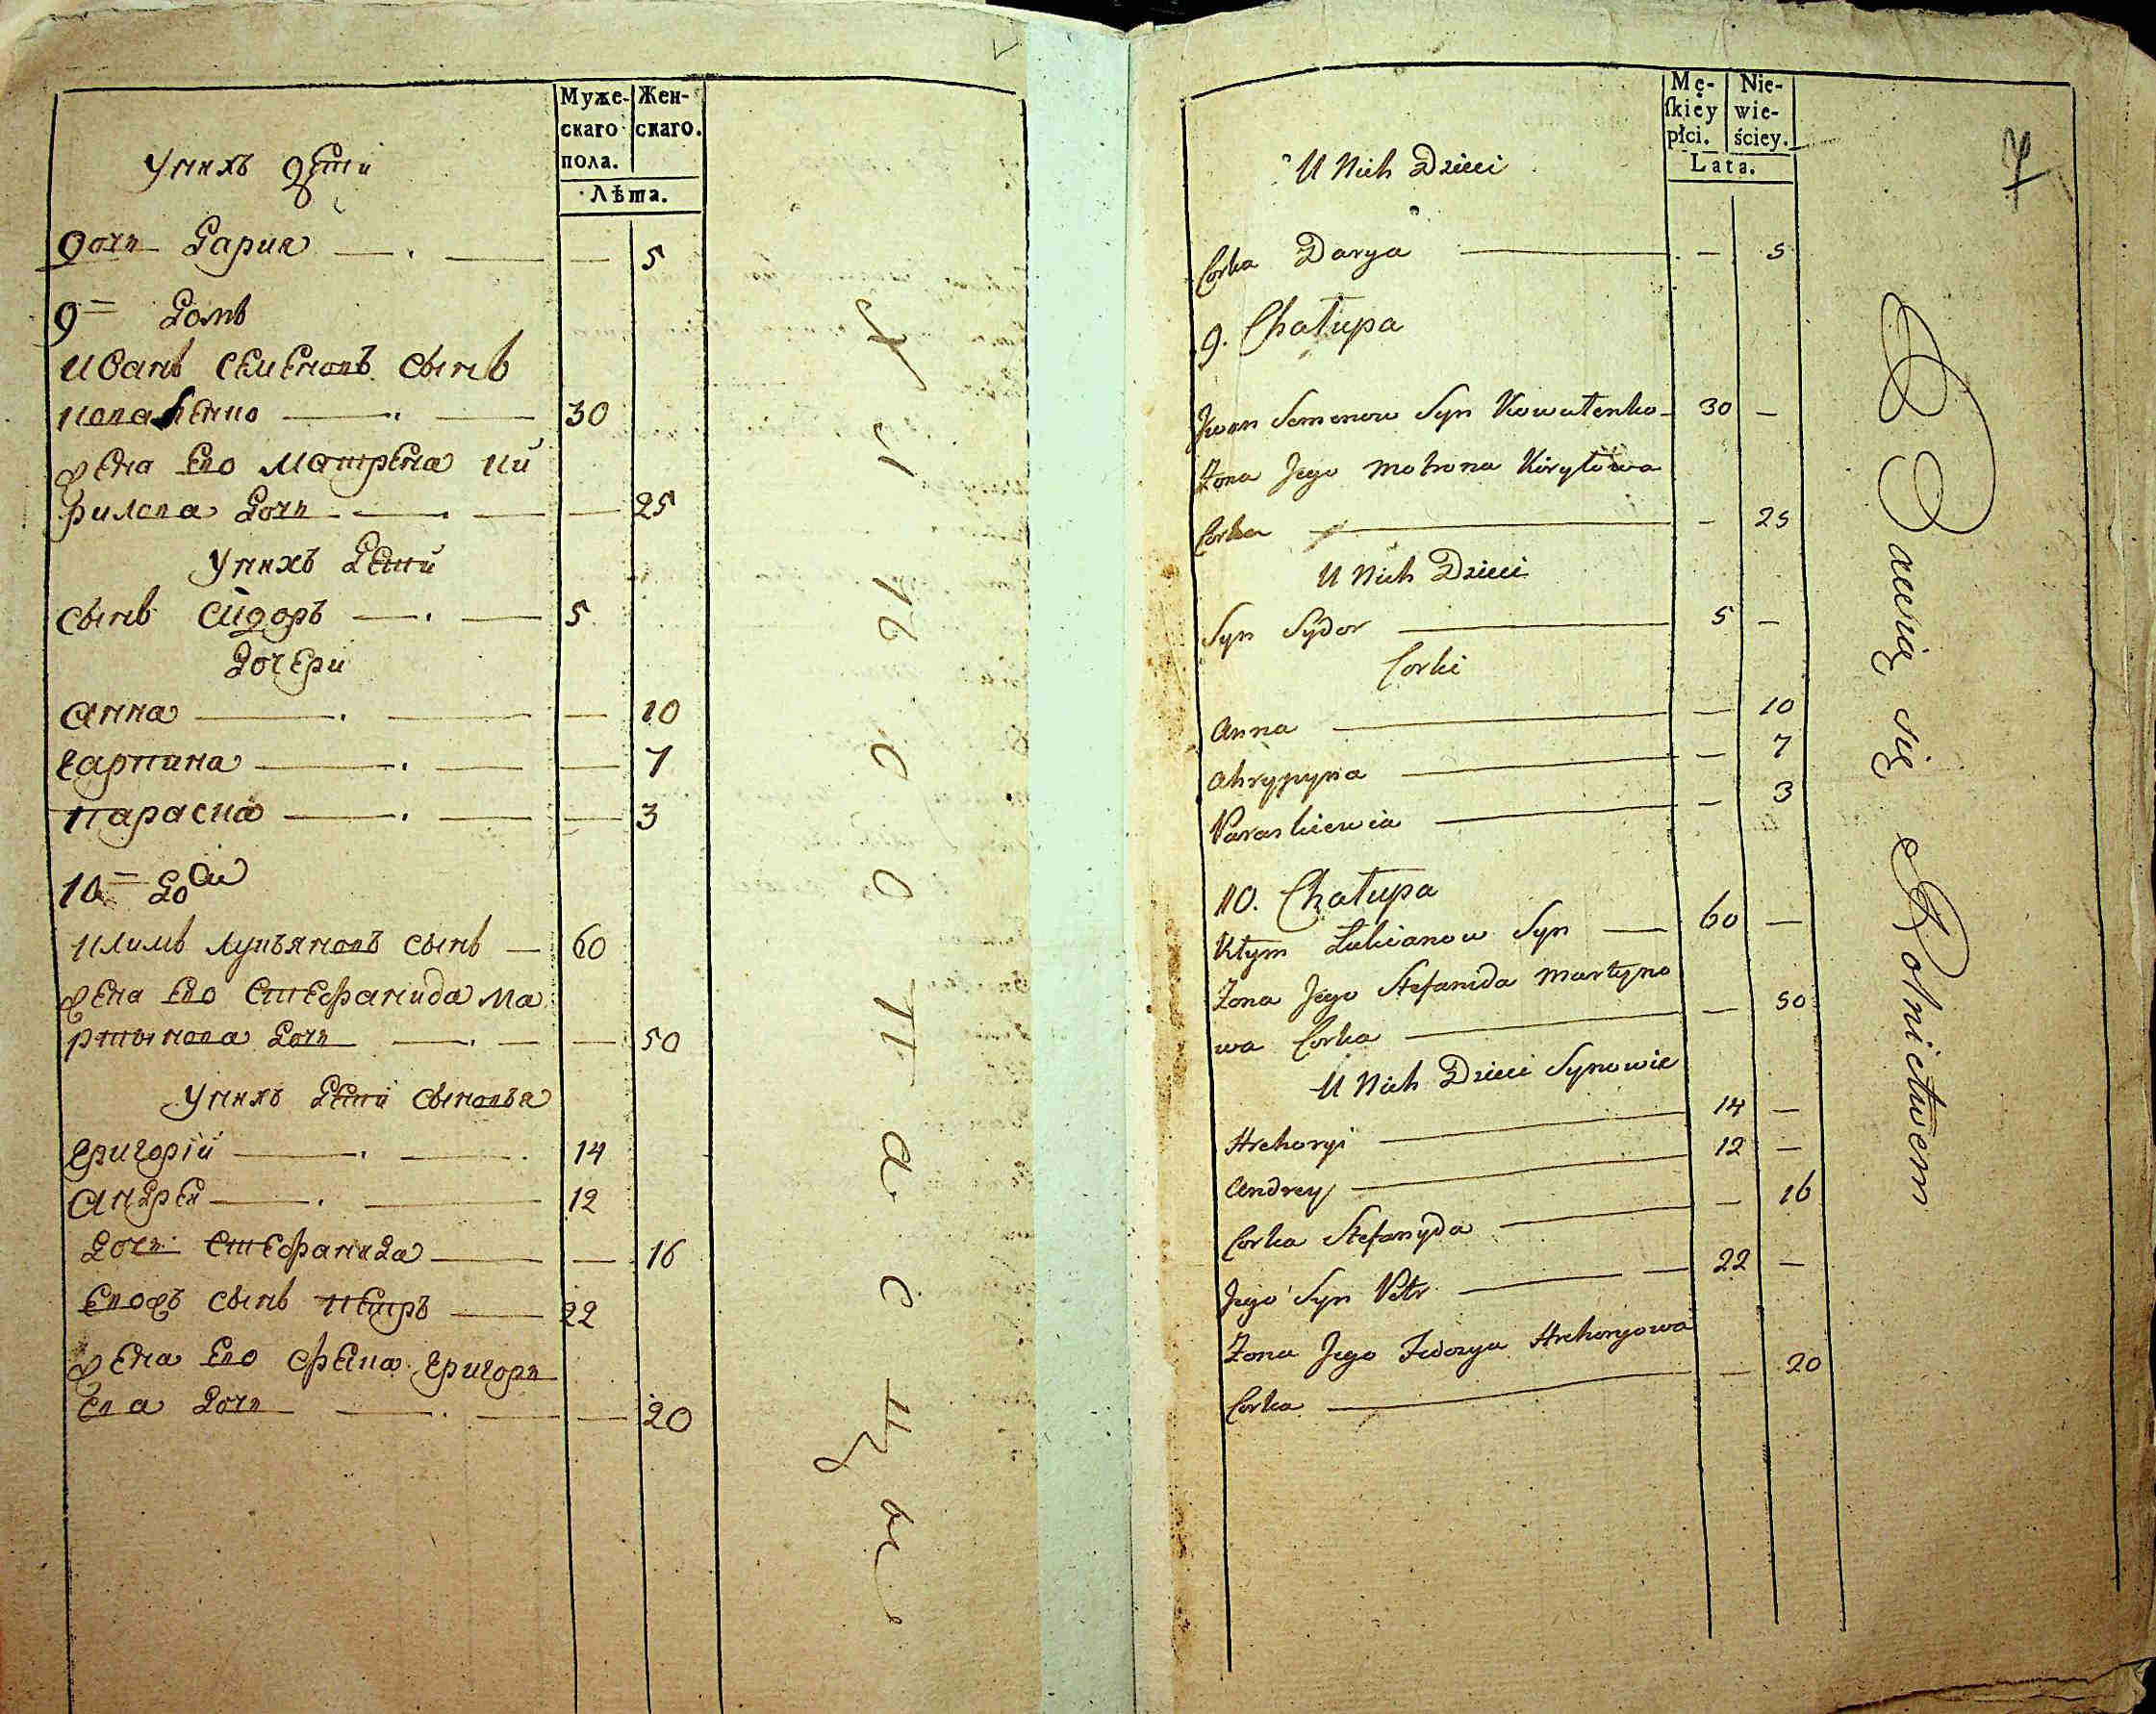 Муже-
скаго
пола.
Жен-
скаго.
Лѣта.
У нихъ дети
дочь Дария — . — — 5
9= Домъ
Иванъ Семеновъ сынъ
Коваленко — . — 30
жена ево Мотрена Ки
рилова дочь — . — — 25
У нихъ дети
сынъ Сидоръ — . — 5
Дочери
Анна — . — — 10
Гарпина — . — — 7
Параска — . — — 3
10= Домъ
Климъ Лукъяновъ сынъ — 60
жена ево Стефанида Ма
ртынова дочь — . — — 50
У нихъ дети сыновья
Григорій — . — 14
Андрей — . — 12
дочь Стефанида — — 16
Евожъ сынъ Петръ — 22
жена ево Фенна Григорь
ева дочь — . — — 20
Mę-
ſkiéy
płci.
Nie-
wie-
ściey.
Lata.
7
U Nich Dzieci
Corka Darya — — 5
9. Chałupa
Jwan Semenow Syn Kowalenko — 30 —
Żona Jego Motrona Kiryłowa
Corka — — 25
U Nich Dzieci
Syn Sydor — 5 —
Corki
Anna — — 10
Ahrypyna — — 7
Paraskiewia — — 3
10. Chałupa
Kłym Łukianow Syn — 60 —
Żona Jego Stefanida Martyno
wa Corka — — 50
U Nich Dzieci Synowie
Hrehoryi — 14 —
Andrey — 12 —
Corka Stefanyda — — 16
Jego Syn Petr — — 22 —
Żona Jego Fedosya Hrehoryowa
Corka — — 20
Bawią się Rolnictwem